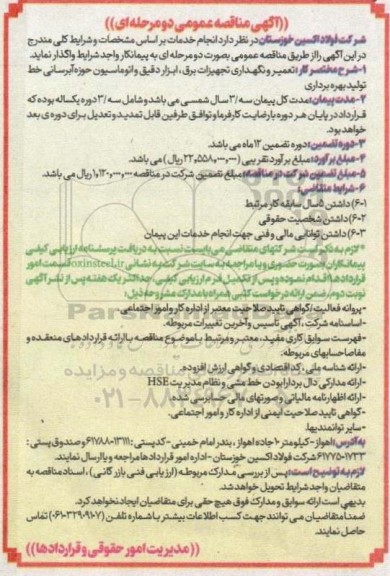 ((آگهی مناقصه عمومی دو مرحله ای))
شرکت فولاد اکسین خوزستان در نظر دارد انجام خدمات بر اساس مشخصات و شرایط کلی مندرج
در این آگهی را از طریق مناقصه عمومی بصورت دو مرحله ای به پیمانکار واجد شرایط واگذار نماید.
۱-شرح مختصر کار: تعمیر و نگهداری تجهیزات برق، ابزار دقیق و اتوماسیون حوزه آبرسانی خط
تولید بهره برداری
۲-مدت پیمان: مدت کل پیمان سه/۳ سال شمسی می باشد و شامل سه/۳ دوره یکساله بوده که
قرارداد در پایان هر دوره با رضایت کارفرما و توافق طرفین قابل تمدید و تعدیل برای دوره ی بعد
خواهد بود.
۳-دوره تضمین: دوره تضمین ۱۲ ماه می باشد.
۴-مبلغ برآورد: مبلغ برآورد تقریبی (۲۲,۵۵۸,۰۰۰,۰۰۰ ریال) می باشد.
۵-مبلغ تضمین شرکت در مناقصه: مبلغ تضمین شرکت در مناقصه ۱,۱۲۰,۰۰۰,۰۰۰ ریال می باشد.
۶-شرایط متقاضی:
۶-۱) داشتن ۵ سال سابقه کار مرتبط
۶-۲) داشتن شخصیت حقوقی
۶-۳) داشتن توانایی مالی و فنی جهت انجام خدمات این پیمان
*لازم به ذکر است شرکتهای متقاضی می بایست نسبت به دریافت پرسشنامه ارزیابی کیفی
پیمانکاران بصورت حضوری و یا مراجعه به سایت شرکت به نشانی oxinsteel.ir قسمت امور
قراردادها اقدام نموده و پس از تکمیل فرم ارزیابی کیفی، حداکثر یک هفته پس از نشر آگهی
نوبت دوم، ضمن ارائه درخواست کتبی (همراه با مدارک مشروحه ذیل):
-پروانه فعالیت/گواهی تایید صلاحیت معتبر از اداره کار و امور اجتماعی.
-اساسنامه شرکت، آگهی تأسیس و آخرین تغییرات مربوطه.
-فهرست سوابق کاری مفید، معتبر و مرتبط با موضوع مناقصه با ارائه قراردادهای منعقده و
مفاصاحسابهای مربوطه.
-ارائه شناسه ملی، کد اقتصادی و گواهی ارزش افزوده.
-ارائه مدارکی دال بر دارا بودن خط مشی و نظام مدیریت HSE
-ارائه اظهارنامه مالیاتی و صورتهای مالی حسابرسی شده.
-گواهی تایید صلاحیت ایمنی از اداره کار و امور اجتماعی.
-سایر توانمندیها.
به آدرس: اهواز - کیلومتر ۱۰ جاده اهواز، بندر امام خمینی - کدپستی: ۶۱۷۸۸۰۱۳۱۱۱ و صندوق پستی:
۶۱۷۷۵۰۱۷۳۳ شرکت فولاد اکسین خوزستان - اداره امور قراردادها مراجعه و یا ارسال نمایند.
لازم به توضیح است: پس از بررسی مدارک مربوطه (ارزیابی فنی بازرگانی)، اسناد مناقصه به
متقاضیان واجد شرایط تحویل خواهد شد.
بدیهی است ارائه سوابق و مدارک فوق هیچ حقی برای متقاضیان ایجاد نخواهد کرد.
ضمنا متقاضیان می توانند جهت کسب اطلاعات بیشتر با شماره تلفن (۳۲۹۰۹۱۰۷-۰۶۱) تماس
حاصل نمایند.
((مدیریت امور حقوقی و قراردادها))